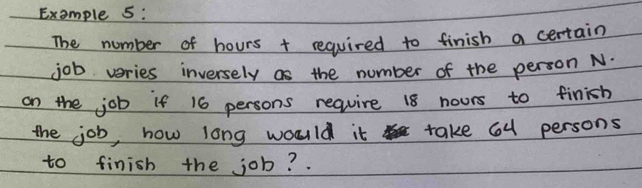 Example 5:
The number of hours t required to finish a certain
job varies inversely as the number of the person N.
on the job if 16 persons require 18 hours to finish
the job, how long would it take 64 persons
to finish the job?.